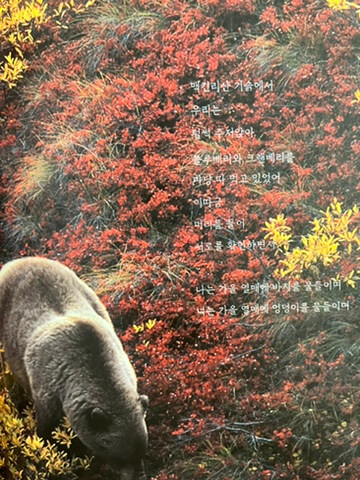 맥킨리산 기슭에서
우리는
털썩 주저앉아,
블루베리와 크랜베리를
마냥 따 먹고 있었어
이따금
머리를 들어
서로를 확인하면서

나는 가을 열매에 바지를 물들이며
너는 가을 열매에 엉덩이를 물들이며